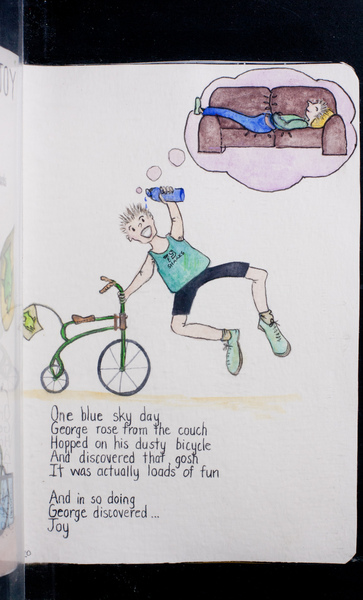 JOY
One blue sky day
George rose from the couch
Hopped on his dusty bicycle
And discovered that gosh
It was actually loads of fun
And in so doing
George discovered...
Joy